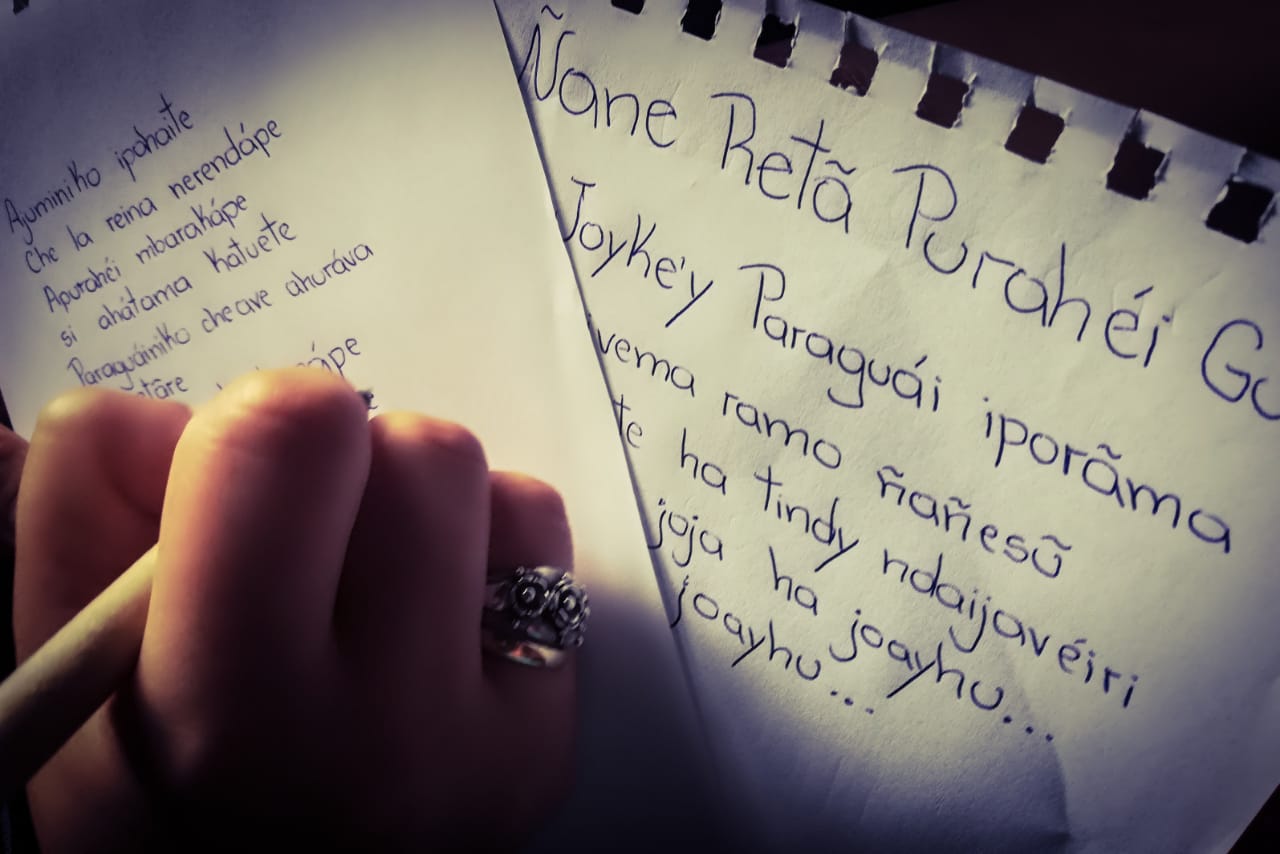 Ajuminiko ipohaite
Che la reina nerendápe
Apurahéi mbarakápe
si ahátama katuete
Paraguáiniko cheave ahuráva
Ñane Retã Purahéi Gu
Joyke'y Paraguái iporãma
vema ramo ñañesũ
te ha tindy ndaijavéiri
joja ha joayhu...
joayhu...